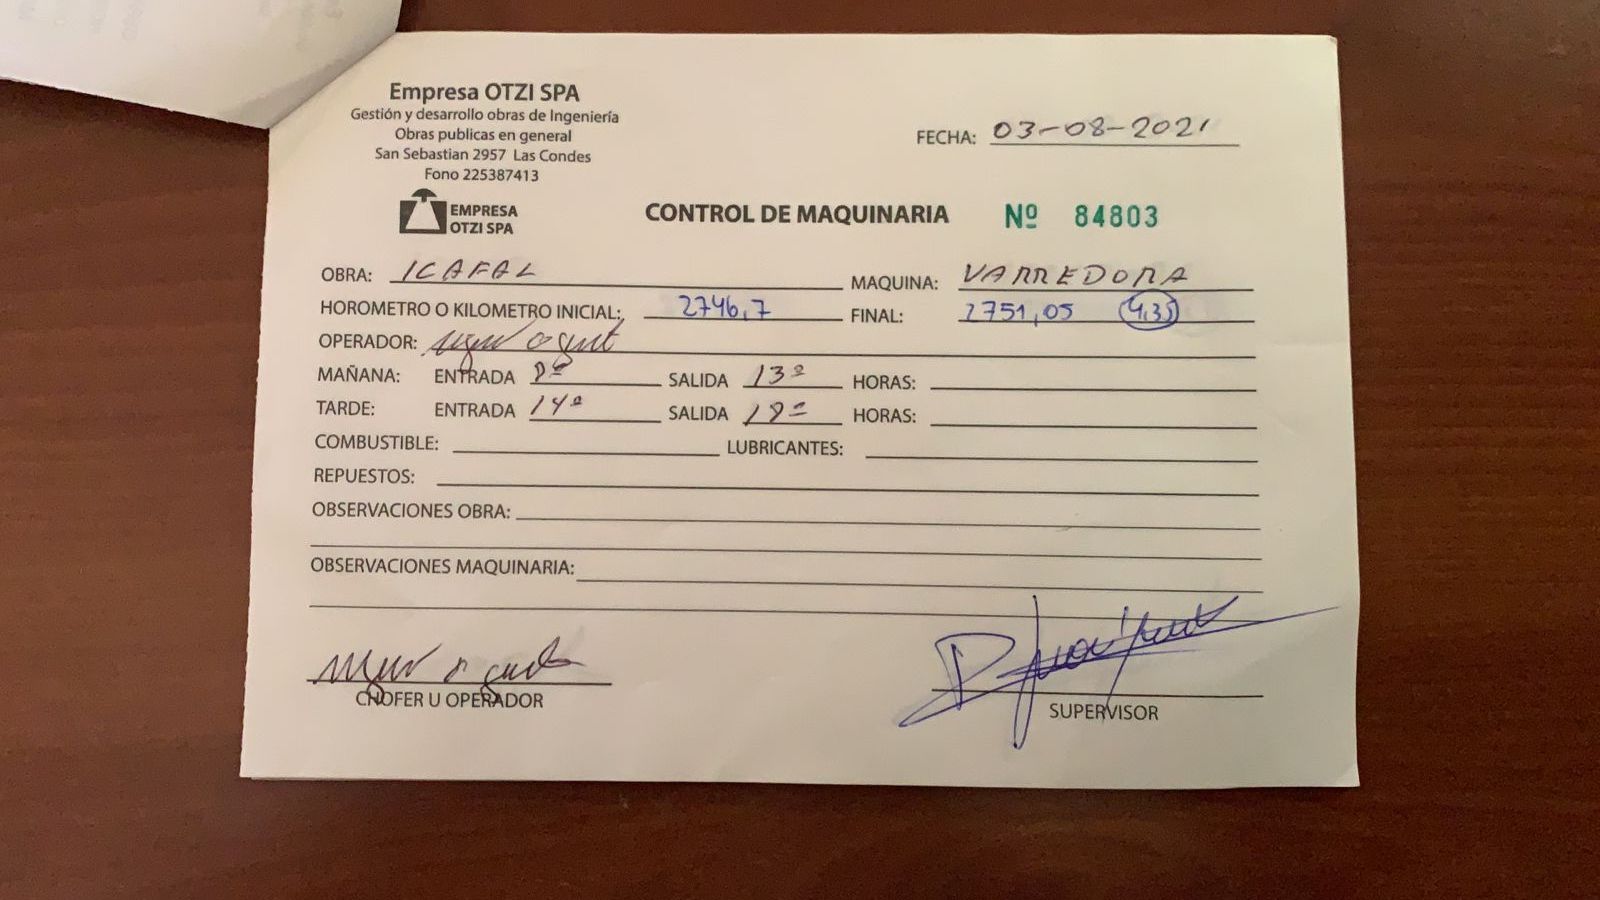 Empresa OTZI SPA
Gestión y desarrollo obras de Ingeniería
Obras publicas en general
San Sebastian 2957 Las Condes
Fono 225387413
FECHA: 03-08-2021
EMPRESA
OTZI SPA
CONTROL DE MAQUINARIA Nº 84803
OBRA: ICAFAL MAQUINA: VARREDORA
HOROMETRO O KILOMETRO INICIAL: 2746,7 FINAL: 2751,05 4,35
OPERADOR:
MAÑANA: ENTRADA 8º SALIDA 13º HORAS:
TARDE: ENTRADA 14º SALIDA 18º HORAS:
COMBUSTIBLE: LUBRICANTES:
REPUESTOS:
OBSERVACIONES OBRA:
OBSERVACIONES MAQUINARIA:
CHOFER U OPERADOR
SUPERVISOR